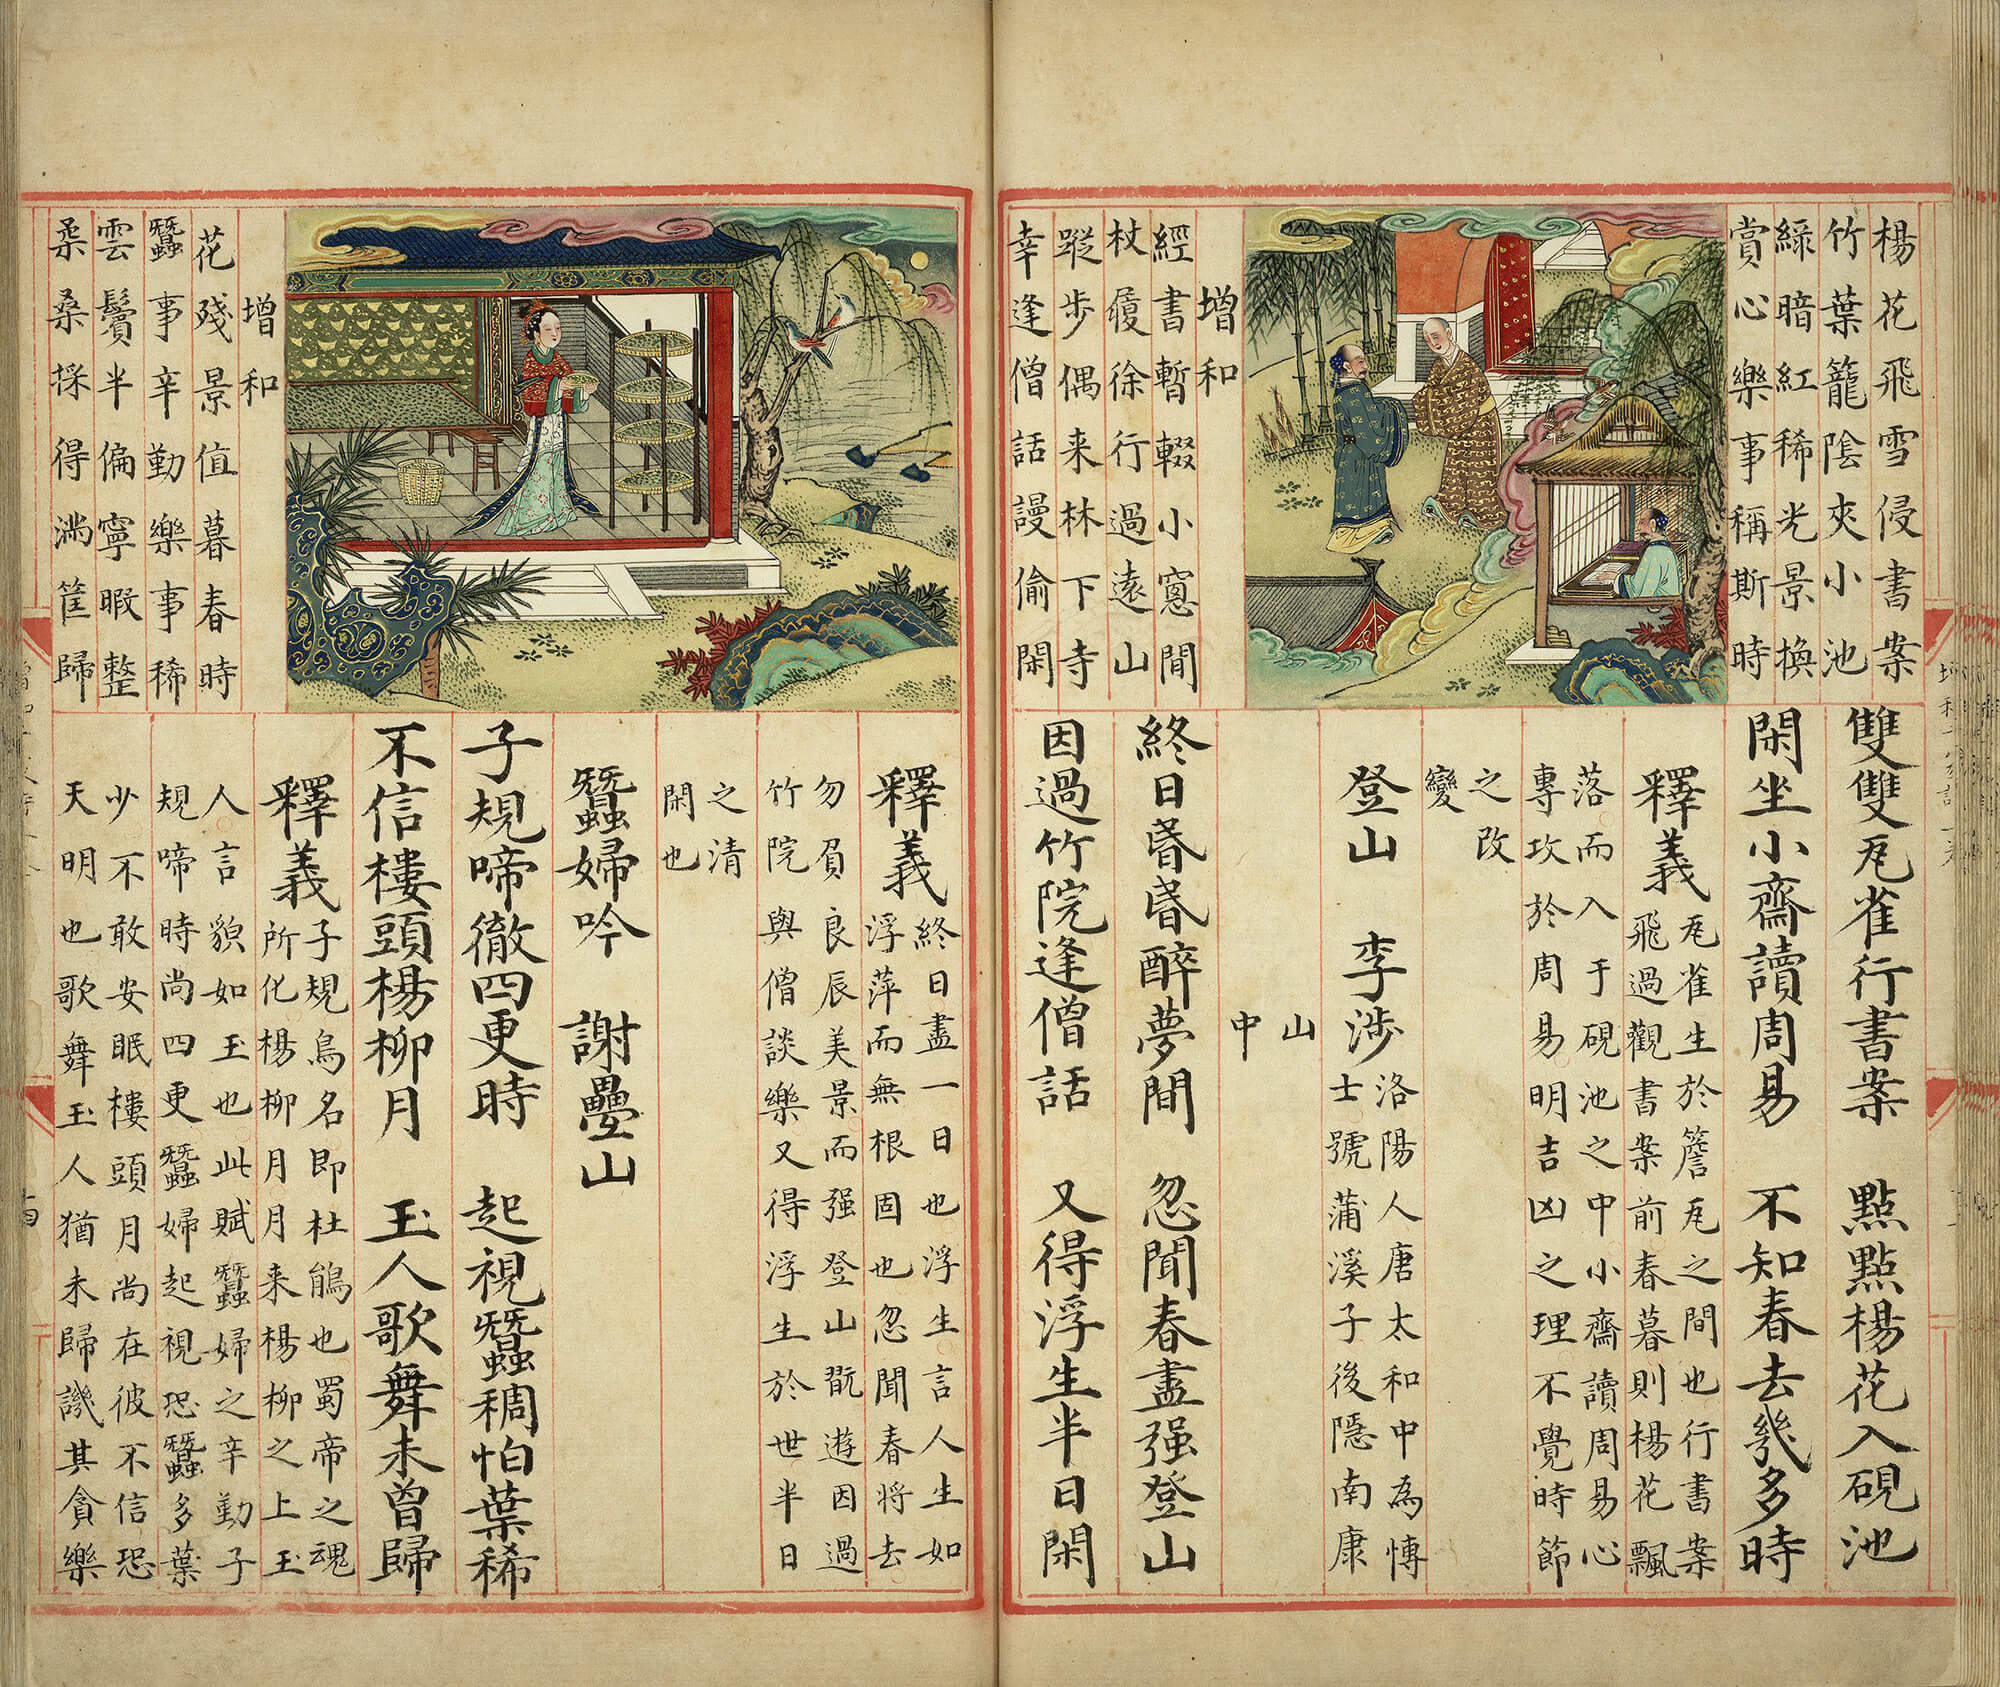 楊花飛雪侵書案
竹葉籠陰夾小池
綠暗紅稀光景換
賞心樂事稱斯時
增和
經書暫輟小窻間
杖履徐行過遠山
蹤步偶来林下寺
幸逢僧話謾偷閑
雙雙瓦雀行書案 點點楊花入硯池
閑坐小齋讀周易 不知春去幾多時
釋義 瓦雀生於簷瓦之間也行書案
飛過觀書案前春暮則楊花飄
落而入于硯池之中小齋讀周易心
專攻於周易明吉凶之理不覺時節
之改
變
登山 李涉 洛陽人唐太和中為博
士號蒲溪子後隱南康
山
中
終日昏昏醉夢間 忽聞春盡强登山
因過竹院逢僧話 又得浮生半日閑
增和
花殘景值暮春時
蠶事辛勤樂事稀
雲鬢半偏寧暇整
柔桑採得滿筐歸
釋義 終日盡一日也浮生言人生如
浮萍而無根固也忽聞春将去
勿負良辰美景而强登山翫遊因過
竹院與僧談樂又得浮生於世半日
之清
閑也
蠶婦吟 謝疊山
子規啼徹四更時 起視蠶稠怕葉稀
不信樓頭楊柳月 玉人歌舞未曾歸
釋義 子規鳥名即杜鵑也蜀帝之魂
所化楊柳月月来楊柳之上玉
人言貌如玉也此賦蠶婦之辛勤子
規啼時尚四更蠶婦起視恐蠶多葉
少不敢安眠樓頭月尚在彼不信恐
天明也歌舞玉人猶未歸譏其貪樂